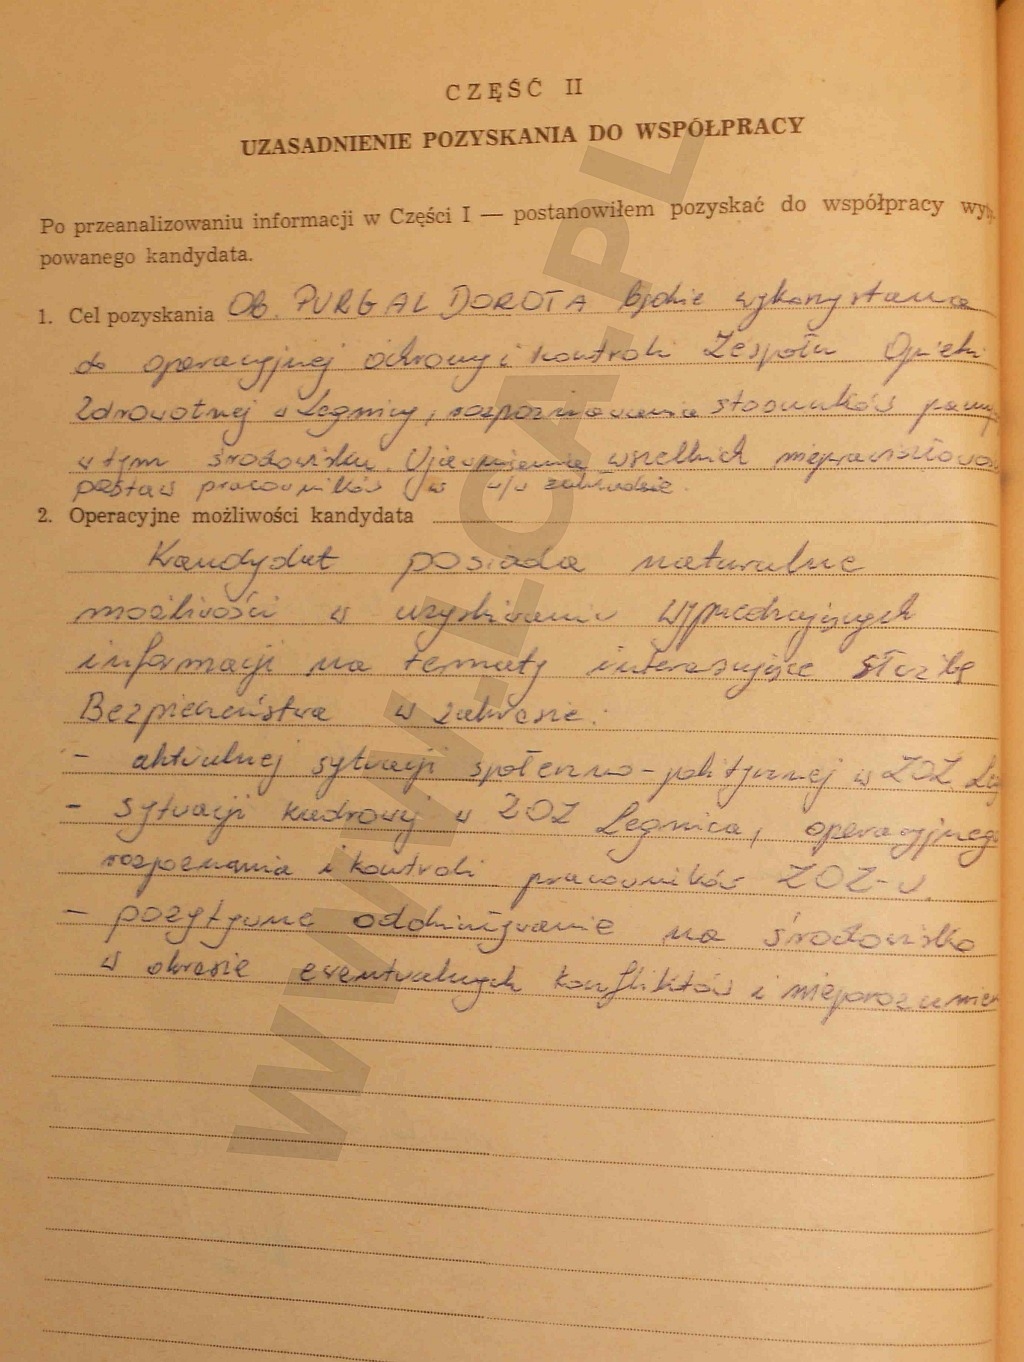 CZĘŚĆ II
UZASADNIENIE POZYSKANIA DO WSPÓŁPRACY
Po przeanalizowaniu informacji w Części I — postanowiłem pozyskać do współpracy wyty-
powanego kandydata.
1. Cel pozyskania Ob. PURGAL DOROTA będzie wykorzystana
do operacyjnej ochrony i kontroli Zespołu Opieki
Zdrowotnej w Legnicy, rozpoznawania stosunków
w tym środowisku. Ujawnienie wszelkich
postaw pracowników w w/w zakładzie.
2. Operacyjne możliwości kandydata
Kandydat posiada naturalne
możliwości w uzyskiwaniu wyprzedzających
informacji na tematy interesujące Służbę
Bezpieczeństwa w zakresie:
- aktualnej sytuacji społeczno-politycznej w ZOZ
- sytuacji kadrowej w ZOZ Legnica, operacyjnego
rozpoznania i kontroli pracowników ZOZ-u.
- pozytywne oddziaływanie na środowisko
w okresie ewentualnych konfliktów i nieporozumień
WWW.LCA.PL